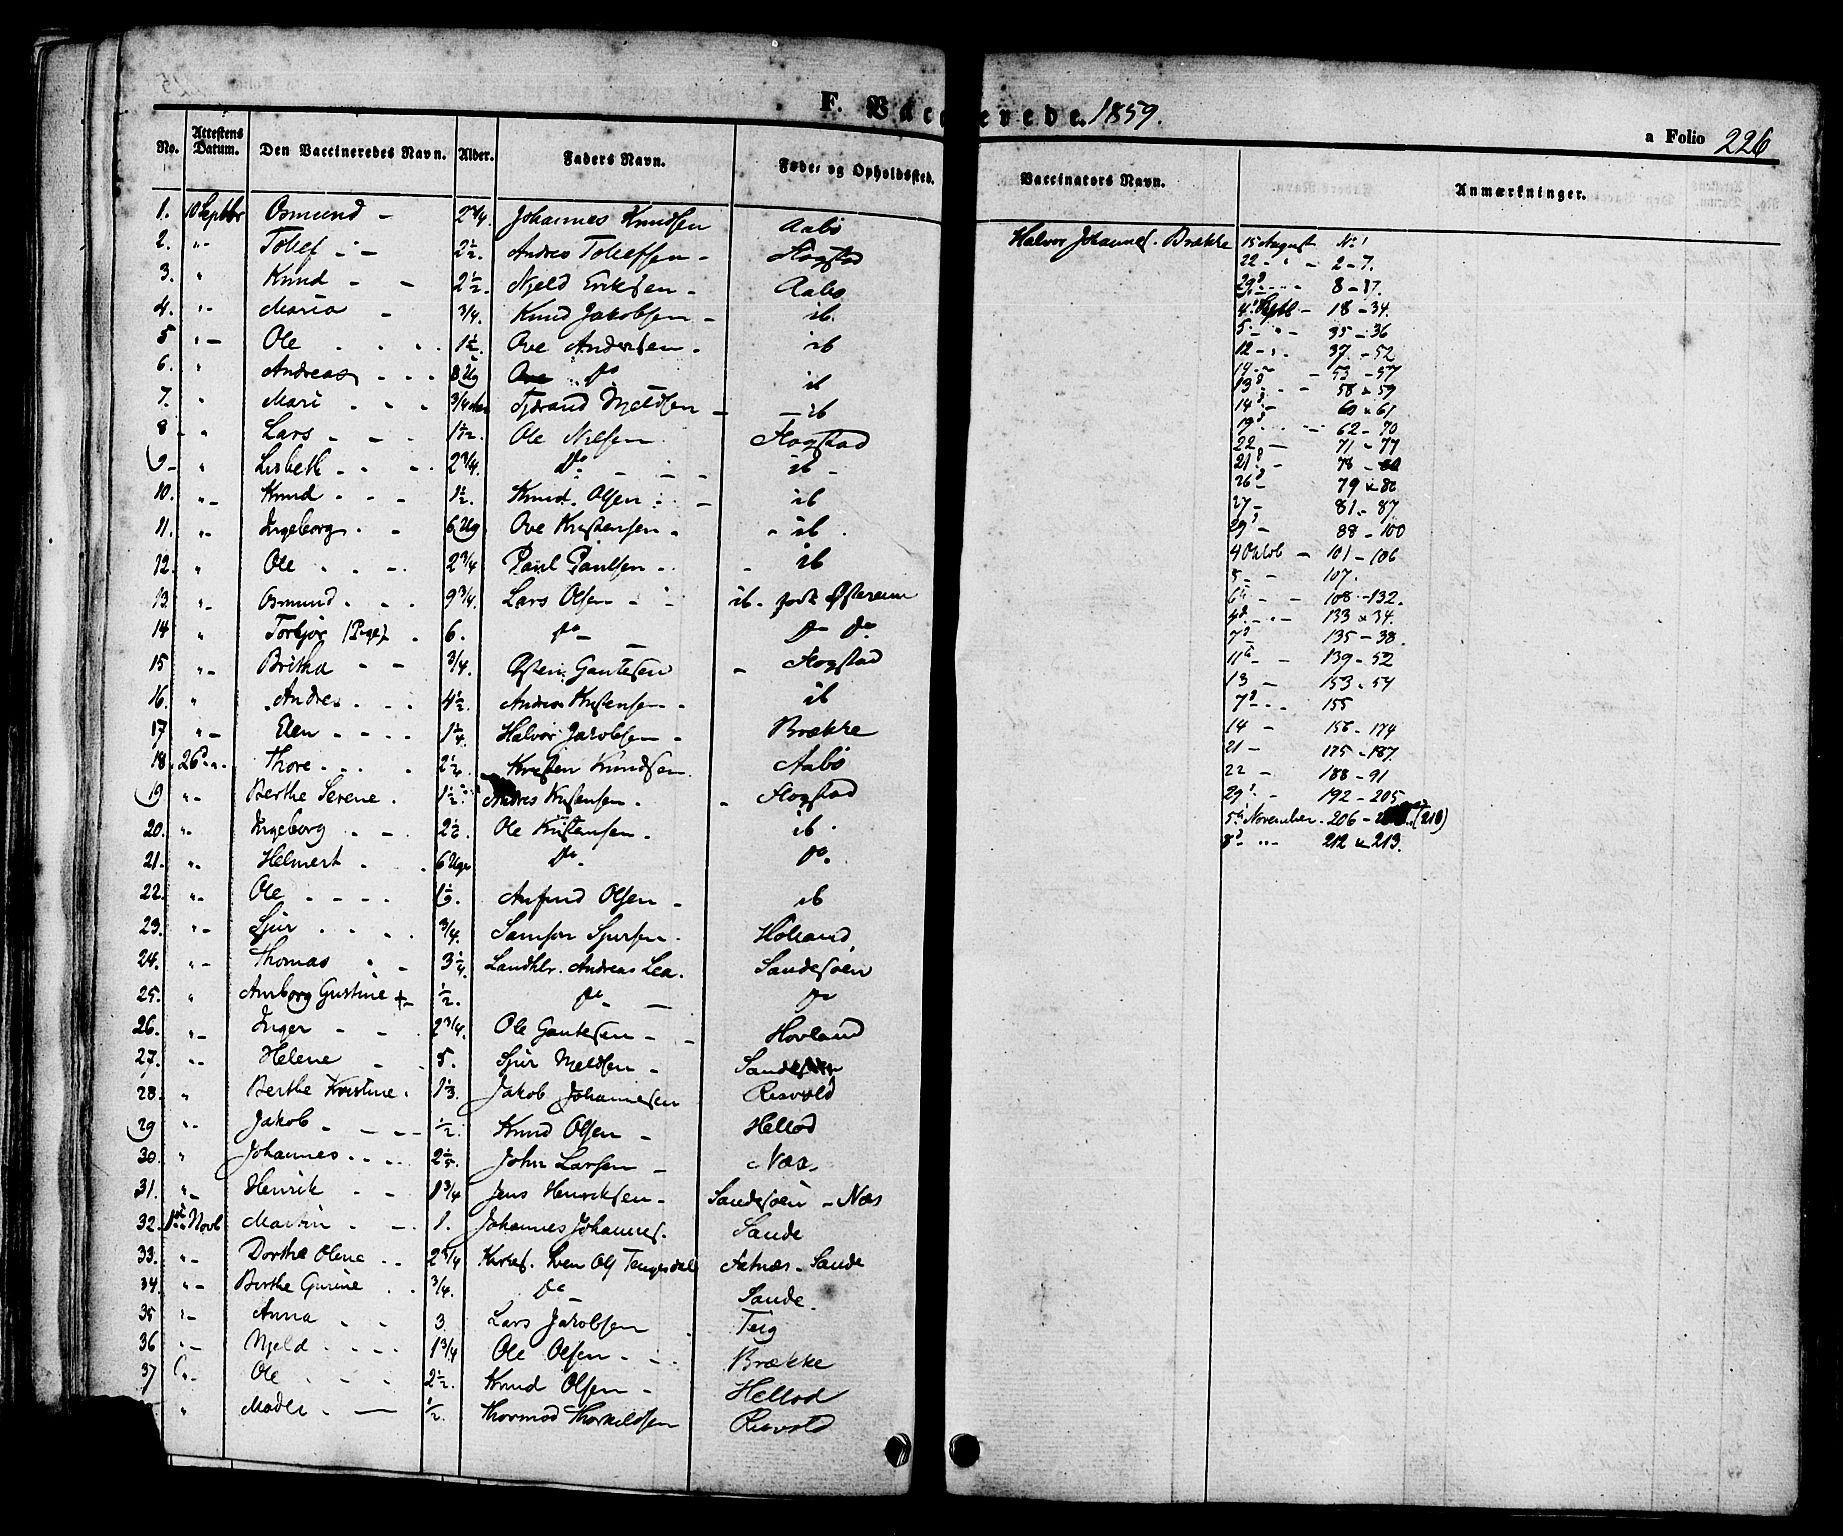 F. Vaccinerede. 1859.
a Folio 226
No. Attestens Datum. Den Vaccineredes Navn. Alder. Faders Navn. Føde- og Opholdssted. Vaccinators Navn. Anmærkninger.
1. 10 Septbr Osmund - 2 3/4. Johannes Knudsen Aabø Halvor Johannes. Brække
2. "- Tollef - - 2 1/2. Andres Tollefsen - Hogstad
3. " Knud - - 2 1/2. Njeld Eriksen - Aabø
4. "- Maria - 3/4. Knud Jakobsen - ib.
5 "- Ole 1 1/2. Ove Andersen - ib
6. " Andreas 8 Ug do ib
7. " Mari 3/4 Tjerand Njeldsen - - ib
8 - " Lars - - - 1 1/2. Ole Nilsen Hogstad
9 - " Lisbeth 2 3/4. Do - - ib -
10. "- Knud 1 1/2. Knud Olsen - ib
11. "- Ingeborg - 6 Ug. Ove Kristensen - - ib
12. " Ole 2 3/4 Paul Paulsen - - ib
13 "- Osmund 9 3/4. Lars Olsen - - ib. født
14 " Torbjør (Pige) 6. do - do do
15 "- Britha - - 3/4. Østen Gautesen - Hogstad
16. " Andres 4 1/2. Andres Kristensen - ib
17 "- Elen 1 1/4. Halvor Jakobsen - Brække
18. 26 d "- Thore 2 1/4 Kristen Knudsen. Aabø
19 "- Berthe Serene. 1 1/2. Andres Kristensen - - Hogstad
20. "- Ingeborg - - 2 1/2. Ole Kristensen - ib
21. "- Helmert - 6 Uger do - do.
22. "- Ole Olsen - ib
23. "- Sjur 3/4. Samson Sjursen. Hølland
24. "- Thomas 3 1/4. Landhlr. Andreas Lea. Sandesøen
25. " Amborg Gurine + 1/2. do - do
26. "- Inger - - 2 3/4. Ole Gautesen - - Hovland
27. "- Helene - 5. Sjur Njeldsen -
28. " Berthe Kristine. 1 1/3. Jakob Johannesen Risvold
29 "- Jakob 1/2. Knud Olsen - Hellod
30. " Johannes John Larsen - Næs
31. "- Henrik - - 1 3/4 Jens Henriksen - Sandesøen - Næs
32. 1ste Novb Martin - - 1. Johannes Johannes. Sande
33. "- Dorthe Olene 2 3/4 Sven Ols Tengesdal - Sande
34 "- Berthe Gurine 3/4. do - Sande.
35 "- Anna 3. Lars Jakobsen Teig
36 "- Njeld 1 3/4 Ole Olsen Brække
37 "- Ole 2 1/2. Knud Olsen - Hellod
" Madli - 1/2. Thormod Thorkildsen Risvold
15 August No 1
22 - " - 2 - 7.
29 d 8 - 17.
4 Septb - 18 - 34.
5 - " - 35 - 36
12 - " 37. - 52
14 - 53 - 57
13 d 58 & 59
14 d - 60 & 61
19 d 62 - 70
22 - 71 - 77
21 d - 78
26 d 79 & 80
27 - 81 - 87
29 d - 88 - 100
4 Oktob - 101 - 106
5 - - 107.
6 te - - 108 - 132.
133 & 34.
7 d 135 - 38.
11 te - 139 - 52
13 - 153 - 54
7 d 155
14 - 156 - 174
21 - 175 - 187.
22 - 188 - 91
29 d - 192 - 205
5 te November - 206 - (210)
8 d "- 212 & 213.